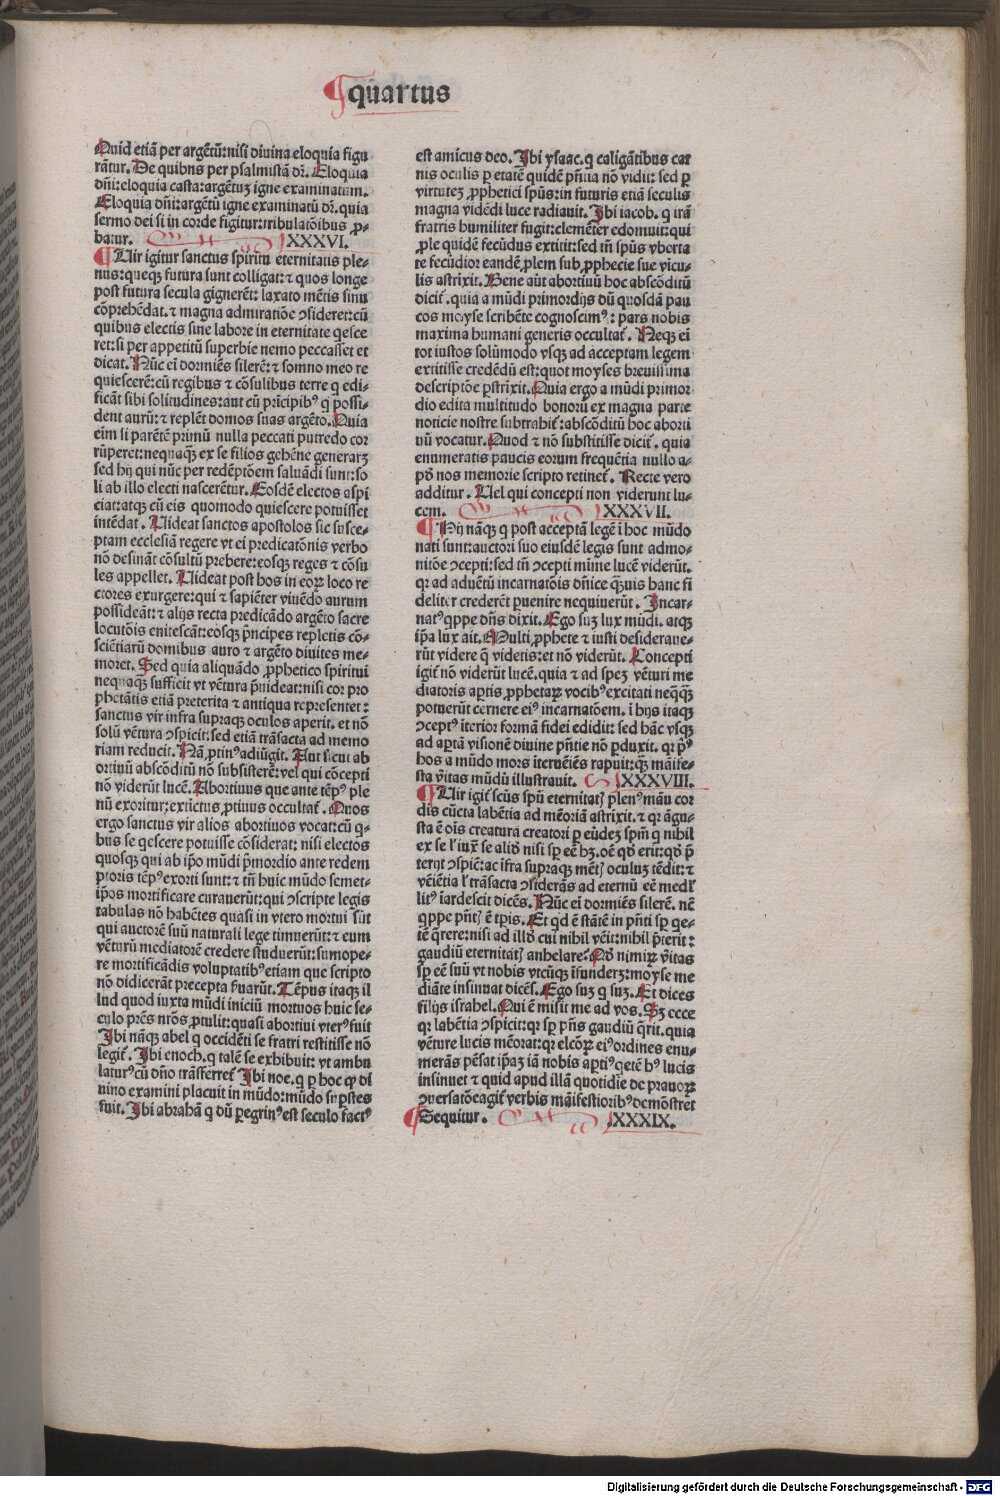 quartus
Quid etiā per argētū:nisi diuina eloquia figu
rātur. De quibus per psalmistā dr̄. Eloquia
dn̄i:eloquia casta:argētuȝ igne examinatum.
Eloquia dn̄i:argētū igne examinatū dr̄. quia
sermo dei si in corde figitur:tribulatōibus ꝓ-
batur. XXXVI.
Uir igitur sanctus spiritu eternitatis ple-
nus:queqȝ futura sunt colligat:⁊ quos longe
post futura secula gignerēt: laxato mētis sinu
cōprehēdat. ⁊ magna admiratiōe ↄsideret:cū
quibus electis sine labore in eternitate qesce
ret:si per appetitū superbie nemo peccasset et
dicat. Nūc eī dormiēs silerē:⁊ somno meo re
quiescerē:cū regibus ⁊ cōsulibus terre q edi-
ficāt sibi solitudines:aut cū pr̄icipibꝰ q possi-
dent aurū: ⁊ replēt domos suas argēto. Quia
eīm si parētē primū nulla peccati putredo cor
rūperet:nequaqȝ ex se filios gehēne generarȝ
sed hij qui nūc per redēptōem saluādi sunt:so
li ab illo electi nascerētur. Eosdē electos aspi
ciat:atqȝ cū eis quomodo quiescere potuisset
intēdat. Uideat sanctos apostolos sic susce-
ptam ecclesiā regere vt ei predicatōnis verbo
nō desināt cōsultū prebere:eosqȝ reges ⁊ cōsu
les appellet. Uideat post hos in eoꝝ loco re
ctores exurgere:qui ⁊ sapiēter viuēdo aurum
possideāt:⁊ alijs recta predicādo argēto sacre
locutōis enitescāt:eosqȝ p̄ncipes repletis cō-
sciētiarū domibus auro ⁊ argēto diuites me-
moret. Sed quia aliquādo ꝓphetico spiritui
nequaqȝ sufficit vt vētura p̄uideat:nisi cor pro
phetātis etiā preterita ⁊ antiqua representet:
sanctus vir infra supraqȝ oculos aperit. et nō
solū vētura ↄspicit:sed etiā trāsacta ad memo
riam reducit. Nā ꝓtinꝰ adiūgit. Aut sicut ab
ortiuū abscōditū nō subsisterē:vel qui cōcepti
nō viderūt lucē. Abortiuus que ante tēpꝰ ple
nū exoritur:extictus ꝓtinus occultat̄. Quos
ergo sanctus vir alios abortiuos vocat:cū q-
bus se qescere potuisse cōsiderat: nisi electos
quosqȝ qui ab ip̄o mūdi p̄mordio ante redem
ptoris tēpꝰ exorti sunt:⁊ tn̄ huic mūdo semet-
ip̄os mortificare curauerūt:qui ↄscripte legis
tabulas nō habētes quasi in vtero mortui sūt
qui auctorē suū naturali lege timuerūt:⁊ eum
vēturū mediatorē credere studuerūt:sumope-
re mortificādis voluptatibꝰ etiam que scripto
nō didicerāt precepta ẜuarūt. Tēpus itaqȝ il
lud quod iuxta mūdi iniciū mortuos huic se-
culo prēs nr̄os ꝓtulit:quasi abortiui vterꝰ fuit
Ibi nāqȝ abel q occidēti se fratri restitisse nō
legit̄. Ibi enoch. q talē se exhibuit: vt ambu
laturꝰ cū dn̄o trāsferret̄ Ibi noe. q p hoc qꝫ di
uino examini placuit in mūdo:mūdo supstes
fuit. Ibi abrahā q dū pegrinꝰ est seculo factꝰ
est amicus deo. Ibi ysaac. q caligātibus car
nis oculis p etatē quidē pn̄tia nō vidit: sed p
virtuteȝ ꝓphetici spūs:in futuris etiā seculis
magna vidēdi luce radiauit. Ibi iacob. q irā
fratris humiliter fugit:elemēter edomuit:qui
ꝓle quidē fecūdus extitit:sed tn̄ spūs vberta
te fecūdior eandē ꝓlem sub ꝓphecie sue vīcu-
lis astrixit. Bene aūt abortiuū hoc abscōditū
dicit̄. quia a mūdi primordijs dū quosdā pau
cos moyse scribēte cognoscimꝰ: pars nobis
maxima humani generis occultat̄. Neqȝ eī
tot iustos solūmodo vsqȝ ad acceptam legem
extitisse credēdū est:quot moyses breuissima
descriptōe pstrīxit. Quia ergo a mūdi primor
dio edita multitudo bonorū ex magna parte
noticie nostre subtrahit̄:abscōditū hoc aborti
uū vocatur. Quod ⁊ nō substitisse dicit̄. quia
enumeratis paucis eorum frequētia nullo a-
pd̄ nos memorie scripto retinet̄. Recte vero
additur. Uel qui concepti non viderunt lu-
cem. XXXVII.
Hij nāqȝ q post acceptā legē ī hoc mūdo
nati sunt:auctori suo eiusdē legis sunt admo-
nitōe ↄcepti:sed tn̄ ↄcepti mīme lucē viderūt.
qr ad aduētū incarnatōis dn̄ice q̄uis hanc fi
deliter crederēt puenire nequiuerūt. Incar-
natꝰ qppe dn̄s dixit. Ego suȝ lux mūdi. atqȝ
ip̄a lux ait. Multi ꝓphete ⁊ iusti desideraue-
rūt videre q videtis:et nō viderūt. Concepti
igit̄ nō viderūt lucē. quia ⁊ ad speȝ vēturi me
diatoris aptis ꝓphetaꝝ vocibꝰ excitati neqȝqȝ
potuerūt cernere eiꝰ incarnatōem. ī hijs itaqȝ
ↄceptꝰ īterior formā fidei edidit: sed hāc vsqȝ
ad aptā visionē diuine pn̄tie nō pduxit. qr p̄ꝰ
hos a mūdo mors īteruēiēs rapuit:qȝ māife-
sta v̄itas mūdū illustrauit. XXXVIII.
Uir igit̄ scūs spū eternitatꝭ plenꝰ manu cor
dis cūcta labētia ad mēoriā astrixit. ⁊ qr āgu-
sta ē oīs creatura creatori p eūdeȝ spm̄ q nihil
ex se ł iuxͣ se aliđ nisi sp eē hȝ. oē qđ erit:qđ p̄
terijt ↄspiciē:ac īfra supraqȝ mētꝭ oculuȝ tēdit:⁊
vēiētia ł trāsacta ↄsiderās ad eternū eē medł
litꝰ īardescit dicēs. Nūc eī dormiēs silerē. nē
qppe pn̄tꝭ ē tp̄is. Et qđ ē stātē in pn̄ti sp qe-
tē q̄rere:nisi ad illđ cui nihil vēit:nihil p̄terit:
gaudiū eternitatꝭ anhelare? Qđ nimiꝝ v̄itas
sp eē suū vt nobis vtcūqȝ īfunderȝ:moyse me
diāte insinuat dicēs. Ego suȝ q suȝ. Et dices
filijs israhel. Qui ē misit me ad vos. Sȝ ecce
qr labētia ↄspicit:qr sp pn̄s gaudiū q̄rit. quia
vēture lucis mēorat:qr elcōꝝ eiꝰ ordines enu-
merās pēsat ip̄aȝ iā nobis aptiꝰ qetē hꝰ lucis
insinuet ⁊ quid apud illā quotidie de prauoꝝ
ↄuersatōe agit̄ verbis māifestioribꝰ demōstret
Sequitur. XXXIX.
Digitalisierung gefördert durch die Deutsche Forschungsgemeinschaft - DFG